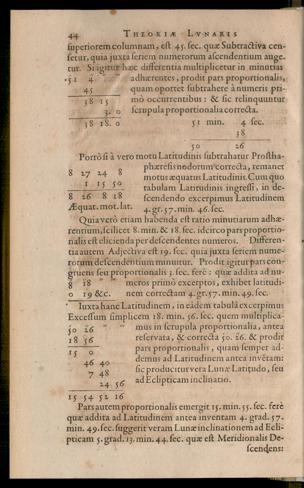 44 THEORIÆ LVNARIS
superiorem columnam, est 45. sec. quæ Subtractiva cen-
setur, quia juxta seriem numerorum ascendentium auge-
tur. Si igitur hæc differentia multiplicetur in minutias
51 4 adhærentes, prodit pars proportionalis,
45 quam oportet subtrahere à numeris pri-
38 15 mò occurrentibus: & sic relinquuntur
3. 0 scrupula proportionalia correcta.
38 18. 0 51 min. 4 sec.
38
50 26
Porrò si à vero motu Latitudinis subtrahatur Prostha-
phæresis nodorum correcta, remanet
8 27 24 8 motus æquatus Latitudinis. Cum quo
1 15 50 tabulam Latitudinis ingressi, in de-
8 26 8 18 scendendo excerpimus Latitudinem
Æquat. mot. lat. 4. gr. 57. min. 46. sec.
Quia verò etiam habenda est ratio minutiarum adhæ-
rentium, scilicet 8. min. & 18. sec. idcirco pars proportio-
nalis est elicienda per descendentes numeros. Differen-
tia autem Adjectiva est 19. sec. quia juxta seriem nume-
rorum descendentium minuitur. Prodit igitur pars con-
gruens seu proportionalis 3. sec. ferè: quæ addita ad nu-
8 18 " meros primò excerptos, exhibet latitudi-
0 19 &c. nem correctam 4. gr. 57. min. 49. sec.
Iuxta hanc Latitudinem, in eadem tabula excerpimus
Excessum simplicem 18. min. 56. sec. quem multiplica-
50 26 " mus in scrupula proportionalia, antea
18 56 reservata, & correcta 50. 26. & prodit
15 0 pars proportionalis, quam semper ad-
46 40 demus ad Latitudinem antea invētam:
7 48 sic producitur vera Lunæ Latitudo, seu
24 56 ad Eclipticam inclinatio.
15 54 52 16
Pars autem proportionalis emergit 15. min. 55. sec. ferè
quæ addita ad Latitudinem antea inventam 4. grad. 57.
min. 49. sec. suggerit veram Lunæ inclinationem ad Ecli-
pticam 5. grad. 13. min. 44. sec. quæ est Meridionalis De-
scendens: